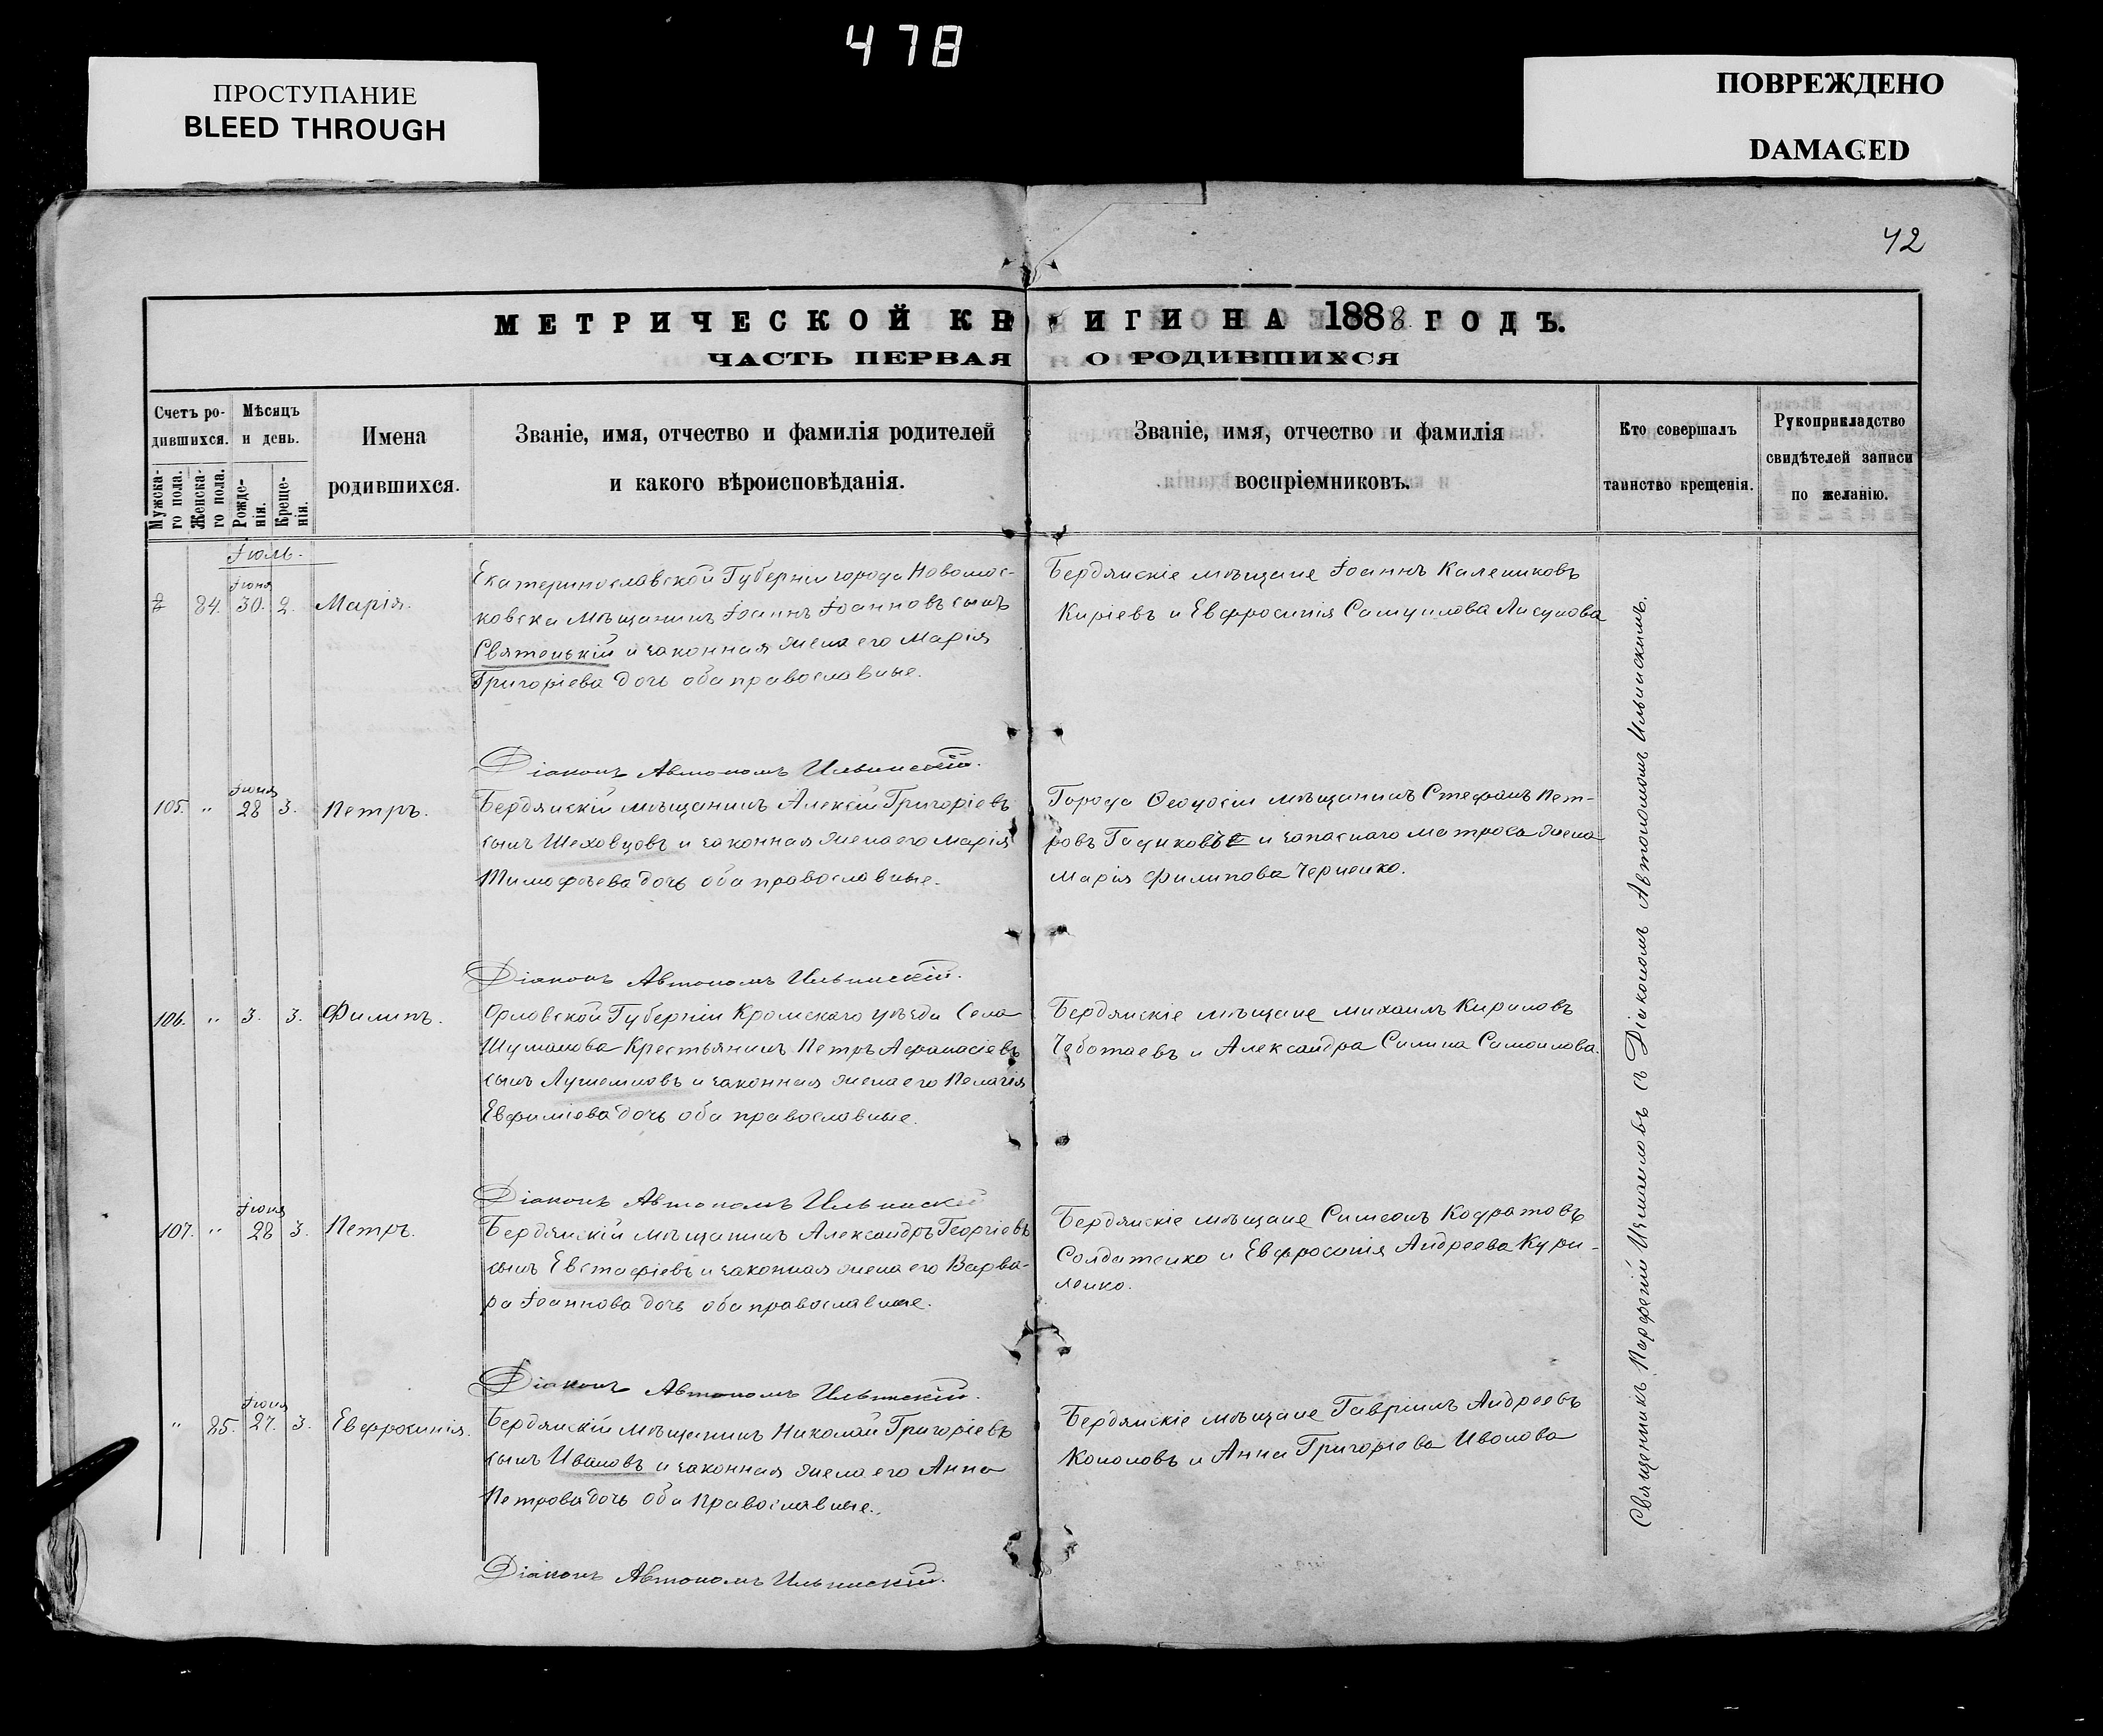 478
ПРОСТУПАНИЕ
BLEED THROUGH
ПОВРЕЖДЕНО
DAMAGED
42
МЕТРИЧЕСКОЙ КН ИГИ НА 1888 ГОДЪ.
ЧАСТЬ ПЕРВАЯ О РОДИВШИХСЯ
Счетъ ро-
дившихся.
Мужска-
го пола.
Женска-
го пола.
Мѣсяцъ
и день.
Рожде-
нія.
Креще-
нія.
Имена
родившихся.
Званіе, имя, отчество и фамилія родителей
и какого вѣроисповѣданія.
Званіе, имя, отчество и фамилія
воспріемниковъ.
Кто совершалъ
таинство крещенія.
Рукоприкладство
свидѣтелей записи
по желанію.
Іюль.
Іюня
84. 30. 2. Марія.
Екатеринославской Губерніи города Новомос-
ковска мѣщанинъ Іоаннъ Іоанновъ сынъ
Святецькій и законная жена его Марія
Григоріева дочь оба православные.
Бердянскіе мѣщане Іоаннъ Калениковъ
Киріевъ и Евфросинія Самуилова Лисунова
Діаконъ Автономъ Ильинскій.
Іюня
105. " 28 3. Петръ.
Бердянскій мѣщанинъ Алексій Григоріевъ
сынъ Шеховцовъ и законная жена его Марія
Тимофѣева дочь оба православные.
Города Ѳеодосіи мѣщанинъ Стефанъ Пет-
ровъ и запаснаго матроса жена
Марія Филипова Черненко.
Діаконъ Автономъ Ильинскій.
106. " 3. 3. Филипъ.
Орловской Губерніи Кромскаго уѣзда Села
Шумакова Крестьянинъ Петръ Афанасіевъ
сынъ и законная жена его Пелагія
Евфиміева дочь оба православные.
Бердянскіе мѣщане Михаилъ Кириловъ
Чеботаевъ и Александра Силина Самоилова.
Діаконъ Автономъ Ильинскій
Іюня
107. " 28 3. Петръ.
Бердянскій мѣщанинъ Александръ Георгіевъ
сынъ Евстафіевъ и законная жена его Варва-
ра Іоаннова дочь оба православные.
Бердянскіе мѣщане Симеонъ Кодратовъ
Солдатенко и Евфросинія Андреева Кури-
ленко.
Діаконъ Автономъ Ильинскій.
Іюня
" 85. 27. 3. Евфросинія.
Бердянскій мѣщанинъ Николай Григоріевъ
сынъ Ивановъ и законная жена его Анна
Петрова дочь оба православные.
Бердянскіе мѣщане Гавріилъ Андреевъ
Кононовъ и Анна Григоріева Иванова
Діаконъ Автономъ Ильинскій.
Священникъ Парфеній Измаиловъ съ Діакономъ Автономомъ Ильинскимъ.